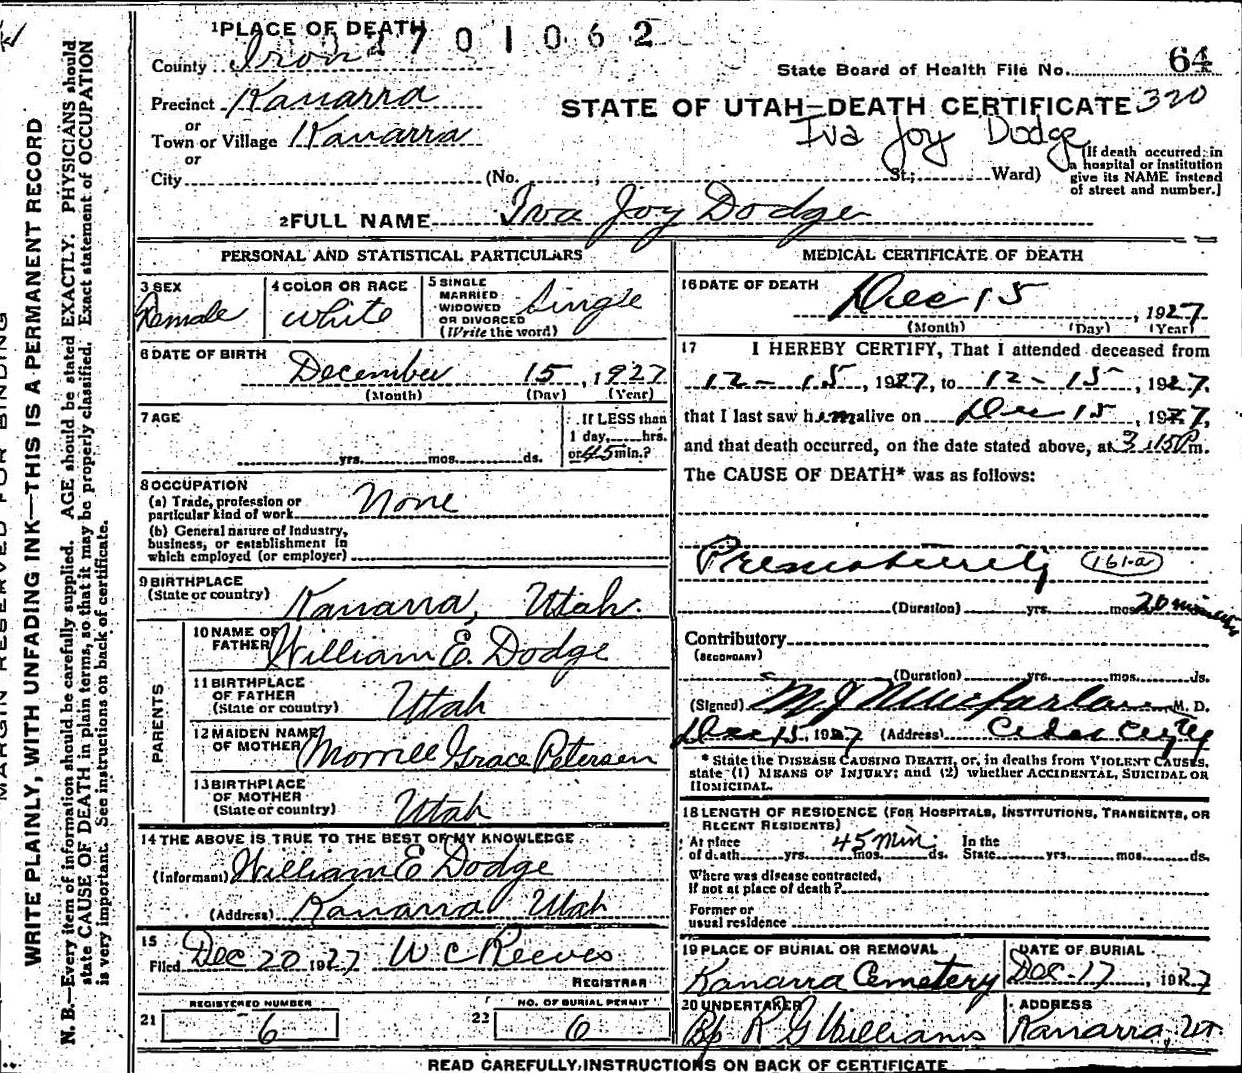 1 PLACE OF DEATH 1701062
County Iron
State Board of Health File No. 64
Precinct Kanarra
STATE OF UTAH—DEATH CERTIFICATE 320
or
Town or Village Kanarra
Iva Joy Dodge
or
City (No. , St.; Ward)
[If death occurred in
a hospital or institution
give its NAME instead
of street and number.]
2 FULL NAME Iva Joy Dodge
PERSONAL AND STATISTICAL PARTICULARS
3 SEX
Female
4 COLOR OR RACE
White
5 SINGLE
MARRIED
WIDOWED
OR DIVORCED
(Write the word)
Single
6 DATE OF BIRTH
December 15, 1927
(Month) (Day) (Year)
7 AGE
yrs. mos. ds.
If LESS than
1 day, hrs.
or 45 min.?
8 OCCUPATION
(a) Trade, profession or
particular kind of work None
(b) General nature of Industry,
business, or establishment in
which employed (or employer)
9 BIRTHPLACE
(State or country) Kanarra, Utah.
PARENTS
10 NAME OF
FATHER William E. Dodge
11 BIRTHPLACE
OF FATHER
(State or country) Utah
12 MAIDEN NAME
OF MOTHER Morrill Grace Petersen
13 BIRTHPLACE
OF MOTHER
(State or country) Utah
14 THE ABOVE IS TRUE TO THE BEST OF MY KNOWLEDGE
(Informant) William E Dodge
(Address) Kanarra Utah
15
Filed Dec 20 1927 W C Reeves
REGISTRAR
REGISTERED NUMBER
21 6
NO. OF BURIAL PERMIT
22 6
MEDICAL CERTIFICATE OF DEATH
16 DATE OF DEATH
Dec 15, 1927
(Month) (Day) (Year)
17 I HEREBY CERTIFY, That I attended deceased from
12-15, 1927, to 12-15, 1927,
that I last saw him alive on Dec 15, 1927,
and that death occurred, on the date stated above, at 3:15 P m.
The CAUSE OF DEATH* was as follows:
Prematurity 161-a
(Duration) yrs. mos. 20 minutes
Contributory
(SECONDARY)
(Duration) yrs. mos. ds.
(Signed) M J Macfarlane M. D.
Dec 15, 1927 (Address) Cedar City
* State the DISEASE CAUSING DEATH, or, in deaths from VIOLENT CAUSES,
state (1) MEANS OF INJURY; and (2) whether ACCIDENTAL, SUICIDAL OR
HOMICIDAL.
18 LENGTH OF RESIDENCE (FOR HOSPITALS, INSTITUTIONS, TRANSIENTS, OR
RECENT RESIDENTS)
At place In the
of death yrs. 45 Min mos. ds. State yrs. mos. ds.
Where was disease contracted,
If not at place of death?
Former or
usual residence
19 PLACE OF BURIAL OR REMOVAL
Kanarra Cemetery
DATE OF BURIAL
Dec-17, 1927
20 UNDERTAKER
Bp R G Williams
ADDRESS
Kanarra, Ut.
READ CAREFULLY, INSTRUCTIONS ON BACK OF CERTIFICATE
MARGIN RESERVED FOR BINDING
WRITE PLAINLY, WITH UNFADING INK—THIS IS A PERMANENT RECORD
N. B.—Every item of information should be carefully supplied. AGE should be stated EXACTLY. PHYSICIANS should
state CAUSE OF DEATH in plain terms, so that it may be properly classified. Exact statement of OCCUPATION
is very important. See instructions on back of certificate.